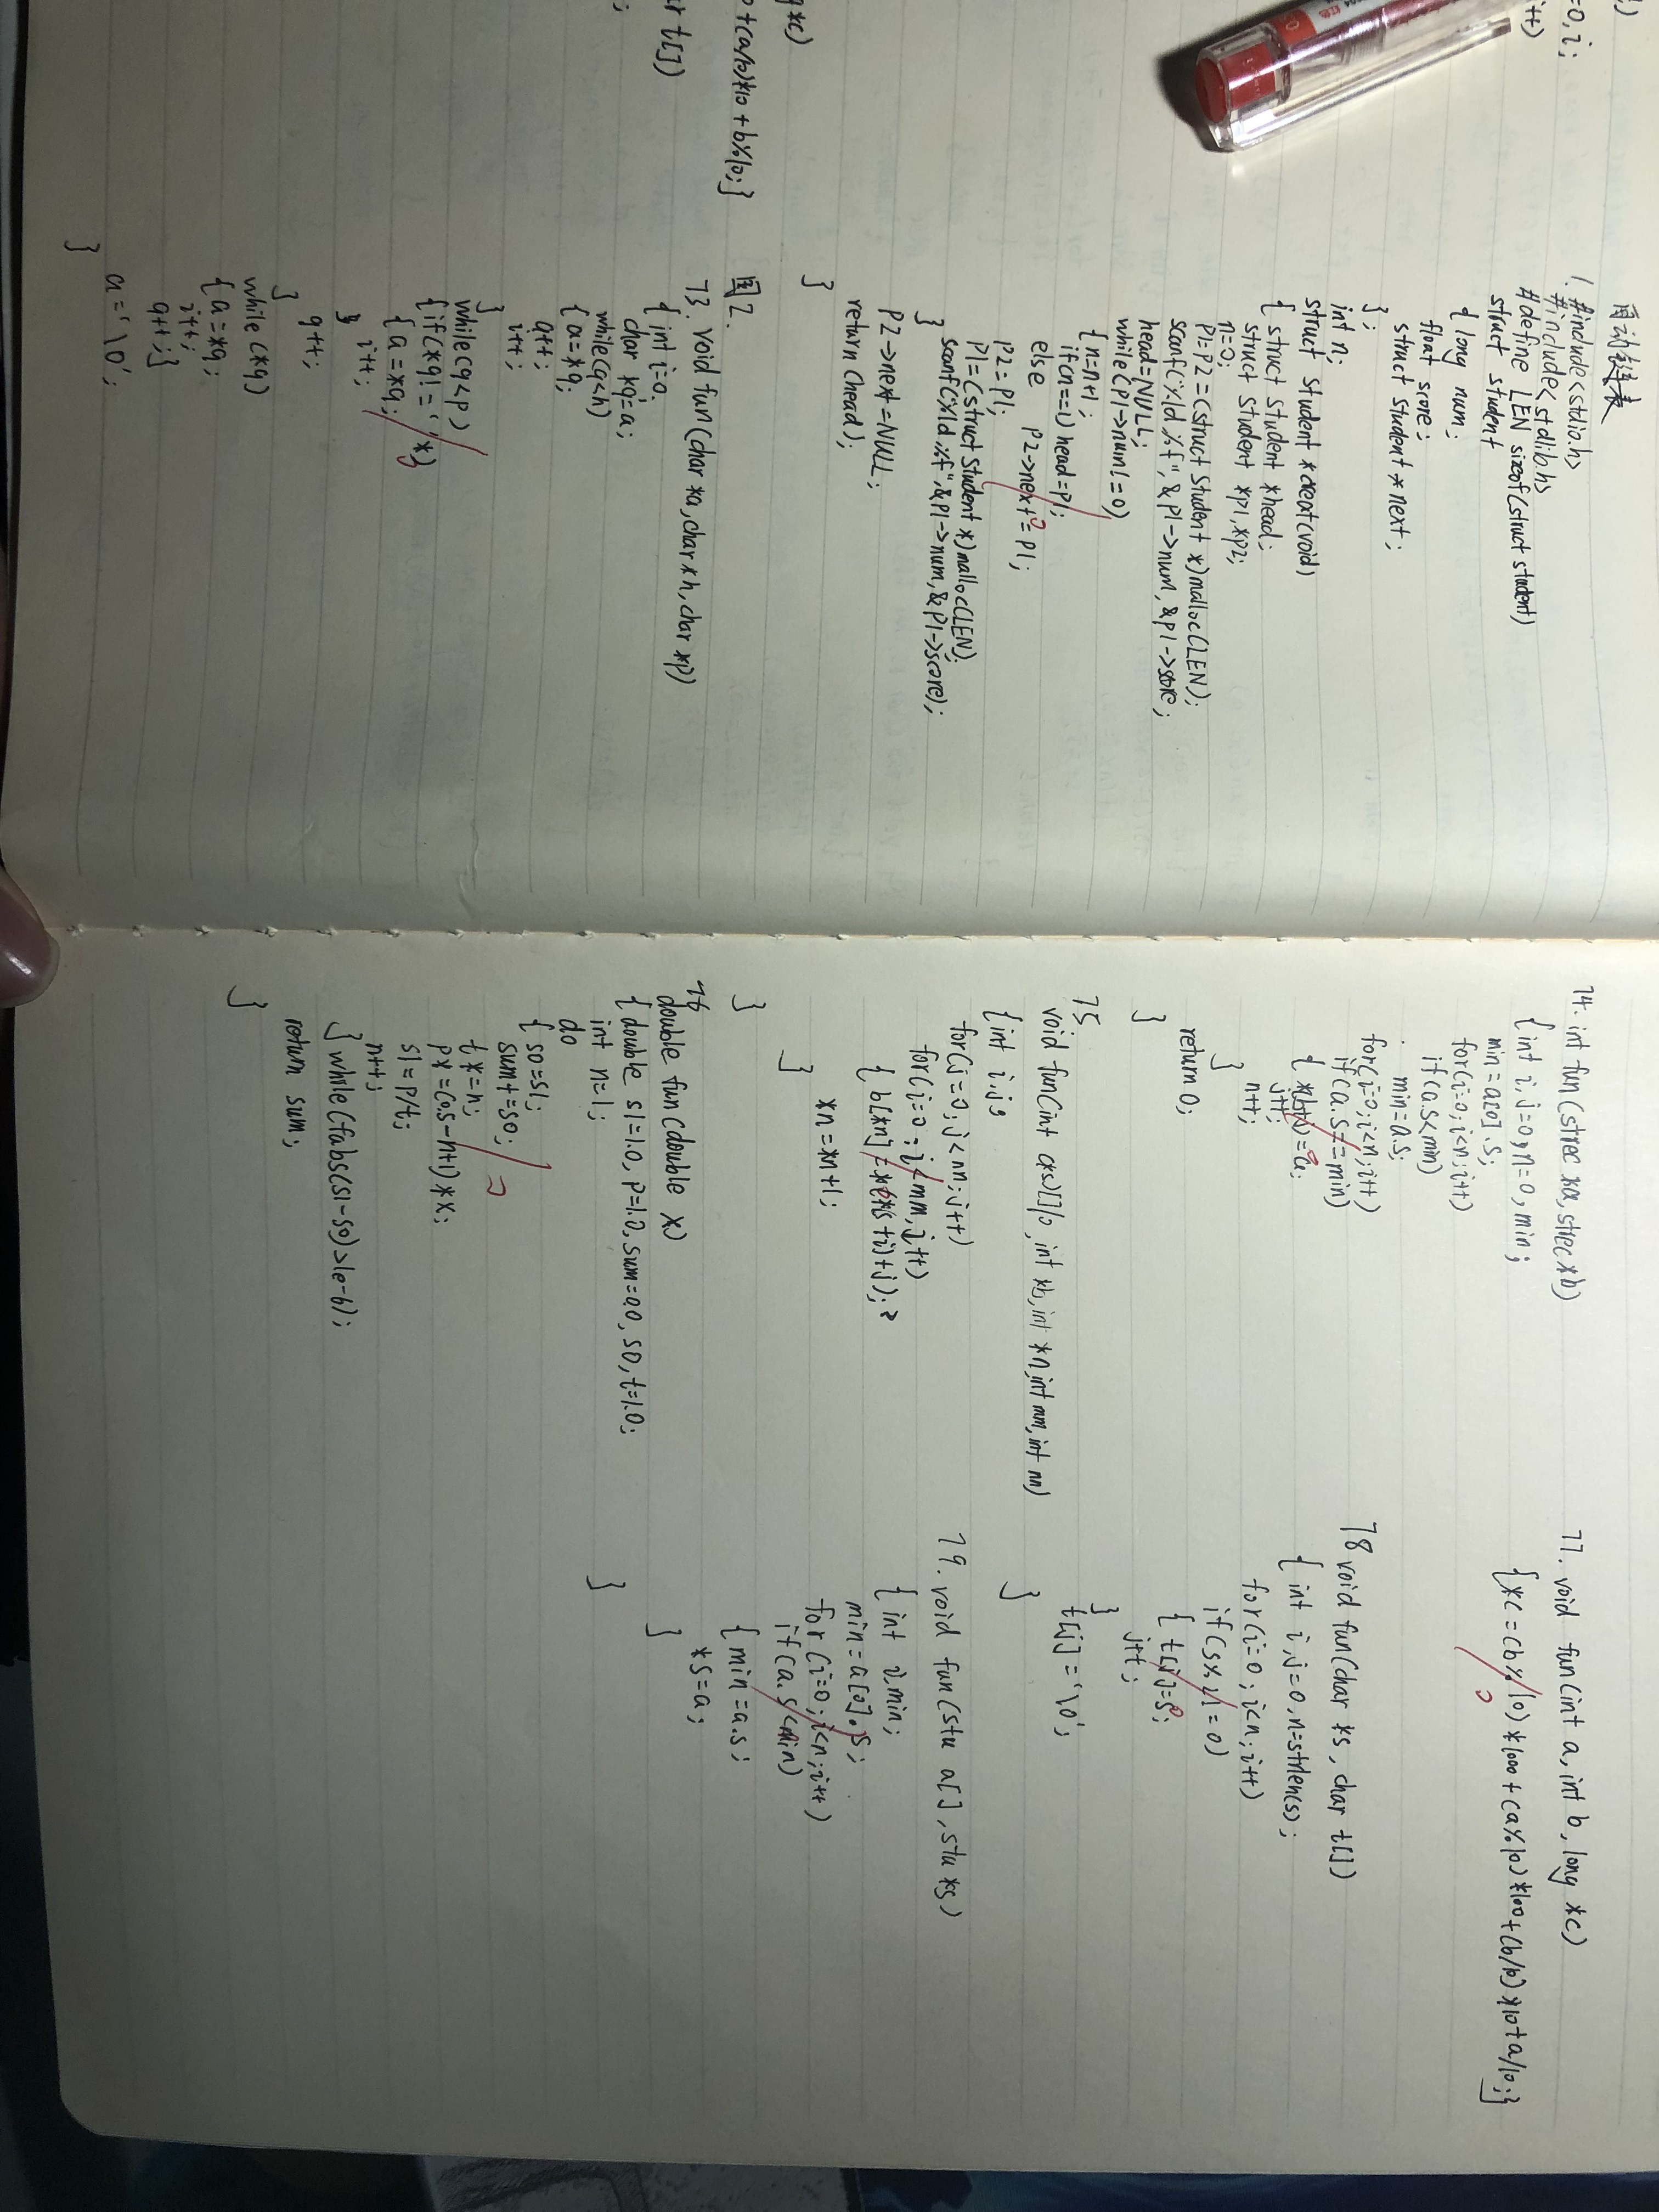 =0,i;
i++)
q*c)
0+(a/10)*10+b%10;}
ar t[])
1. #include<stdio.h>
#include<stdlib.h>
#define LEN sizeof(struct student)
struct student
{ long num;
float score;
struct student *next;
};
int n;
struct student *creat(void)
{ struct student *head;
struct student *p1,*p2;
n=0;
p1=p2=(struct student *)malloc(LEN);
scanf("%ld,%f",&p1->num,&p1->score;
head=NULL;
while(p1->num!=0)
{n=n+1;
if(n==1)head=p1;
else p2->next=p1;
p2=p1;
p1=(struct student *)malloc(LEN);
scanf("%ld,%f",&p1->num,&p1->score);
}
p2->next=NULL;
return(head);
}
图2.
73. void fun(char *a,char *h,char *p)
{int i=0.
char *q=a;
while(q<h)
{a=*q;
q++;
i++;
}
while(q<p)
{if(*q!='*')
{a=*q;
i++;
}
q++;
}
while(*q)
{a=*q;
i++;
q++;}
a='\0';
}
74. int fun(strec *a,strec *b)
{int i,j=0,n=0,min;
min=a[0].s;
for(i=0;i<n;i++)
if(a.s<min)
min=a.s;
for(i=0;i<n;i++)
if(a.s==min)
{*(b+j)=a;
j++;
n++;
}
return 0;
}
75
void fun(int (*s)[10],int *b,int *n,int mm,int nn)
{int i,j;
for(j=0;j<nn;j++)
for(i=0;i<mm,i++)
{ b[*n]=*(*(s+i)+j);
*n=*n+1;
}
}
76
double fun(double x)
{double s1=1.0,p=1.0,sum=0.0,s0,t=1.0;
int n=1;
do
{s0=s1;
sum+=s0;
t*=n;
p*=(0.5-n+1)*x;
s1=p/t;
n++;
}while(fabs(s1-s0)>1e-6);
return sum;
}
77. void fun(int a,int b,long *c)
{*c=(b%10)*1000+(a%10)*100+(b/10)*10+a/10;}
78 void fun(char *s,char t[])
{ int i,j=0,n=strlen(s);
for(i=0;i<n;i++)
if(s%2!=0)
{ t[j]=s;
j++;
}
t[j]='\0';
}
79. void fun(stu a[],stu *s)
{int i,min;
min=a[0].s;
for(i=0;i<n;i++)
if(a.s<min)
{min=a.s;
*s=a;
}
}